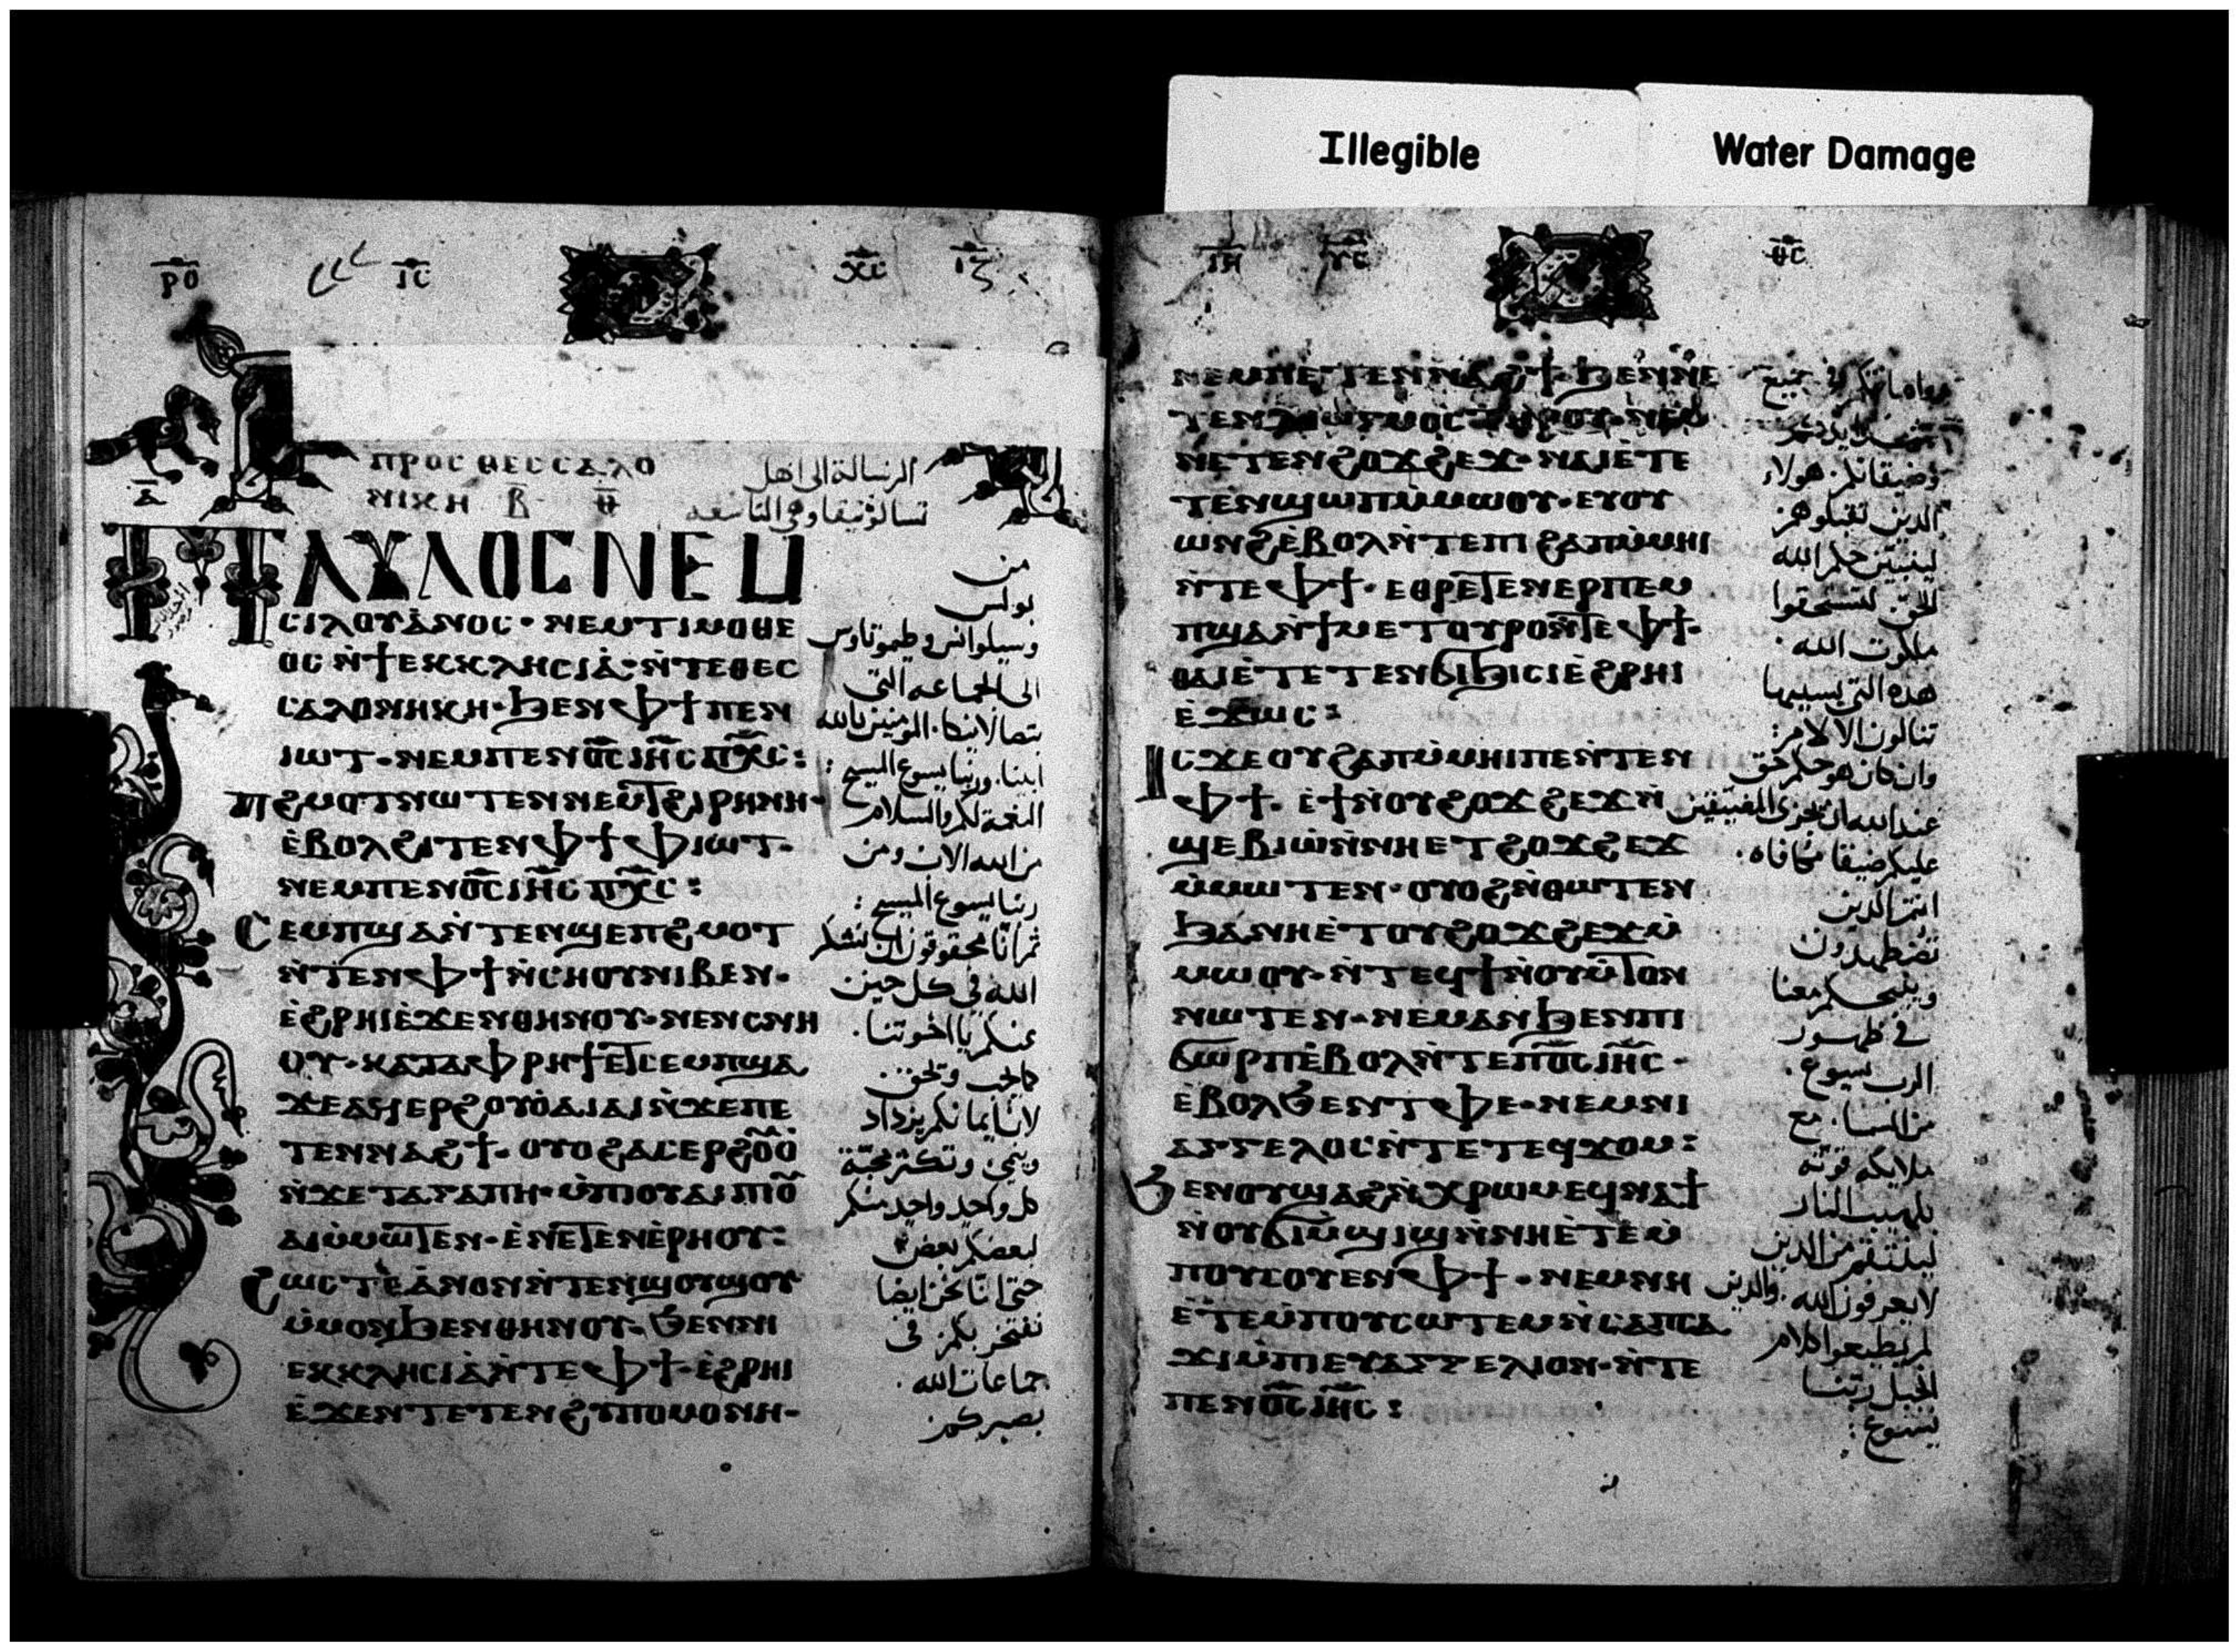 Illegible
Water Damage
ⲣⲟ ⲓⲥ ⲭⲥ ⲓⲍ
ⲡⲣⲟⲥ ⲑⲉⲥⲥⲁⲗⲟ
ⲛⲓⲕⲏ ⲃ ⲑ
الرسالة الى اهل
تسالونيقا وهي التاسعه
ⲁ
ⲡⲁⲩⲗⲟⲥ ⲛⲉⲙ
ⲥⲓⲗⲟⲩⲁⲛⲟⲥ · ⲛⲉⲙ ⲧⲓⲙⲟⲑⲉ
ⲟⲥ ⲛ̀ϯⲉⲕⲕⲗⲏⲥⲓⲁ̀ · ⲛ̀ⲧⲉ ⲑⲉⲥ
ⲥⲁⲗⲟⲛⲏⲕⲏ · ϧⲉⲛ ⲫϯ ⲡⲉⲛ
ⲓⲱⲧ · ⲛⲉⲙ ⲡⲉⲛⲟ̅ⲥ̅ ⲓⲏ̅ⲥ̅ ⲡⲭ̅ⲥ̅ :
ⲡϩⲙⲟⲧ ⲛⲱⲧⲉⲛ ⲛⲉⲙ ⲧϩⲓⲣⲏⲛⲏ ·
ⲉ̀ⲃⲟⲗ ϩⲓⲧⲉⲛ ⲫϯ ⲫⲓⲱⲧ ·
ⲛⲉⲙ ⲡⲉⲛⲟ̅ⲥ̅ ⲓⲏ̅ⲥ̅ ⲡⲭ̅ⲥ̅ :
ⲥⲉⲙⲡϣⲁ ⲛ̀ⲧⲉⲛϣⲉⲡϩⲙⲟⲧ
ⲛ̀ⲧⲉⲛ ⲫϯ ⲛ̀ⲥⲏⲟⲩ ⲛⲓⲃⲉⲛ ·
ⲉ̀ϩⲣⲏⲓ ⲉ̀ϫⲉⲛ ⲑⲏⲛⲟⲩ · ⲛⲉⲛⲥⲛⲏ
ⲟⲩ · ⲕⲁⲧⲁ ⲫⲣⲏϯ ⲉⲧⲥⲉⲙⲡϣⲁ
ϫⲉ ⲁϥⲉⲣϩⲟⲩⲟ̀ ⲁⲓⲁⲓ ⲛ̀ϫⲉ ⲡⲉ
ⲧⲉⲛⲛⲁϩϯ · ⲟⲩⲟϩ ⲁⲥⲉⲣϩⲟⲩⲟ̀
ⲛ̀ϫⲉ ⲧⲁⲅⲁⲡⲏ · ⲙ̀ⲡⲓⲟⲩⲁⲓ ⲡⲓⲟ̅
ⲁⲓ ⲙ̀ⲙⲱⲧⲉⲛ · ⲉ̀ⲛⲉⲧⲉⲛⲉ̀ⲣⲏⲟⲩ :
ϩⲱⲥⲧⲉ ⲁⲛⲟⲛ ⲛ̀ⲧⲉⲛϣⲟⲩϣⲟⲩ
ⲙ̀ⲙⲟⲛ ϧⲉⲛ ⲑⲏⲛⲟⲩ · ϧⲉⲛ ⲛⲓ
ⲉⲕⲕⲗⲏⲥⲓⲁ̀ ⲛ̀ⲧⲉ ⲫϯ · ⲉ̀ϩⲣⲏⲓ
ⲉ̀ϫⲉⲛ ⲧⲉⲧⲉⲛϩⲩⲡⲟⲙⲟⲛⲏ ·
من
بولس
وسيلوانس وطيموتاوس
الى الجماعه التى
بتصالانيكا · المومنين بالله
ابينا · وربنا يسوع المسيح :
النعمة لكم والسلام
من الله الاب ومن
ربنا يسوع المسيح :
ثم انا محقوقون ان نشكر
الله في كل حين
عنكم يا اخوتنا ·
كما يجب ويحق ·
لان ايمانكم يزداد
وينمى وتكثر محبة
كل واحد واحد منكم
لبعضكم بعض
حتى انا نحن ايضا
نفتخر بكم فى
جماعات الله ·
بصبركم
ⲓⲏ ⲩⲥ ⲑⲥ
ⲛⲉⲙ ⲡⲉⲧⲉⲛⲛⲁϩϯ · ϧⲉⲛ ⲛⲉ
ⲧⲉⲛⲇⲓⲱⲅⲙⲟⲥ ⲧⲏⲣⲟⲩ · ⲛⲉⲙ
ⲛⲉⲧⲉⲛϩⲟϫϩⲉϫ · ⲛⲁⲓ ⲉ̀ⲧⲉ
ⲧⲉⲛϣⲱⲡ ⲙ̀ⲙⲱⲟⲩ · ⲉⲩⲟⲩ
ⲱⲛϩ ⲉ̀ⲃⲟⲗ ⲛ̀ⲧⲉ ⲡⲓϩⲁⲡ ⲙ̀ⲙⲏⲓ
ⲛ̀ⲧⲉ ⲫϯ · ⲉⲑⲣⲉⲧⲉⲛⲉⲣⲡⲉⲙ
ⲡϣⲁ ⲛ̀ϯⲙⲉⲧⲟⲩⲣⲟ ⲛ̀ⲧⲉ ⲫϯ ·
ⲑⲁⲓ ⲉ̀ⲧⲉⲧⲉⲛϭⲓϧⲓⲥⲓ ⲉ̀ϩⲣⲏⲓ
ⲉ̀ϫⲱⲥ :
ⲓⲥϫⲉ ⲟⲩϩⲁⲡ ⲙ̀ⲙⲏⲓ ⲡⲉ ⲛ̀ⲧⲉⲛ
ⲫϯ · ⲉ̀ϯ ⲛ̀ⲟⲩϩⲟϫϩⲉϫ ⲛ̀
ϣⲉⲃⲓⲱ̀ ⲛ̀ⲛⲏⲉⲧϩⲟϫϩⲉϫ
ⲙ̀ⲙⲱⲧⲉⲛ · ⲟⲩⲟϩ ⲛ̀ⲑⲱⲧⲉⲛ
ϧⲁ ⲛⲏⲉ̀ⲧⲟⲩϩⲟϫϩⲉϫ ⲙ̀
ⲙⲱⲟⲩ · ⲛ̀ⲧⲉϥϯ ⲛ̀ⲟⲩⲙ̀ⲧⲟⲛ
ⲛⲱⲧⲉⲛ · ⲛⲉⲙⲁⲛ ϧⲉⲛ ⲡⲓ
ϭⲱⲣⲡ ⲉ̀ⲃⲟⲗ ⲛ̀ⲧⲉ ⲡⲟ̅ⲥ̅ ⲓⲏ̅ⲥ̅ ·
ⲉ̀ⲃⲟⲗ ϧⲉⲛ ⲧⲫⲉ · ⲛⲉⲙ ⲛⲓ
ⲁⲅⲅⲉⲗⲟⲥ ⲛ̀ⲧⲉ ⲧⲉϥϫⲟⲙ :
ϧⲉⲛ ⲟⲩϣⲁϩ ⲛ̀ⲭⲣⲱⲙ ⲉϥⲛⲁϯ
ⲛ̀ⲟⲩϭⲓⲙ̀ϣⲓϣ ⲛ̀ⲛⲏⲉ̀ⲧⲉⲙ̀
ⲡⲟⲩⲥⲟⲩⲉⲛ ⲫϯ · ⲛⲉⲙ ⲛⲏ
ⲉ̀ⲧⲉⲙ̀ⲡⲟⲩⲥⲱⲧⲉⲙ ⲛ̀ⲥⲁ ⲡⲥⲁ
ϫⲓ ⲙ̀ⲡⲓⲉⲩⲁⲅⲅⲉⲗⲓⲟⲛ · ⲛ̀ⲧⲉ
ⲡⲉⲛⲟ̅ⲥ̅ ⲓⲏ̅ⲥ̅ :
وامانتكم في جميع
وضيقاتكم هولاء
الذين تقبلوهم
ليتبين حكم الله
الحق لتستحقوا
ملكوت الله ·
هذه التي بسببها
تنالون الالام :
وان كان هو حكم حق
عند الله ان يجزى المضيقين
عليكم ضيقا مكافاه ·
انتم الذين
تضطهدون
ونيحكم معنا
في ظهور
الرب يسوع ·
من السما · مع
ملايكه قوته
بلهيب النار
لينتقم من الذين
لا يعرفون الله · والذين
لم يطيعوا كلام
انجيل ربنا
يسوع :